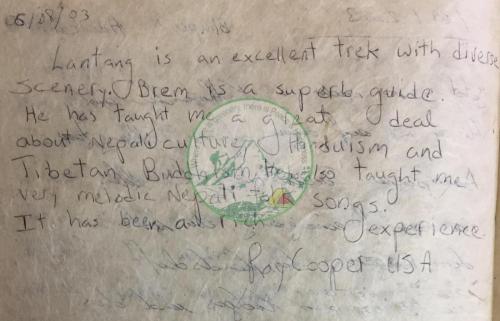 05/08/03
Lantang is an excellent trek with diverse
scenery. Brem is a superb guide.
He has taught me a great deal
about Nepali culture, Hinduism and
Tibetan Buddhism, He also taught me
very melodic Nepali songs.
It has been a rich experience
Ray Cooper USA